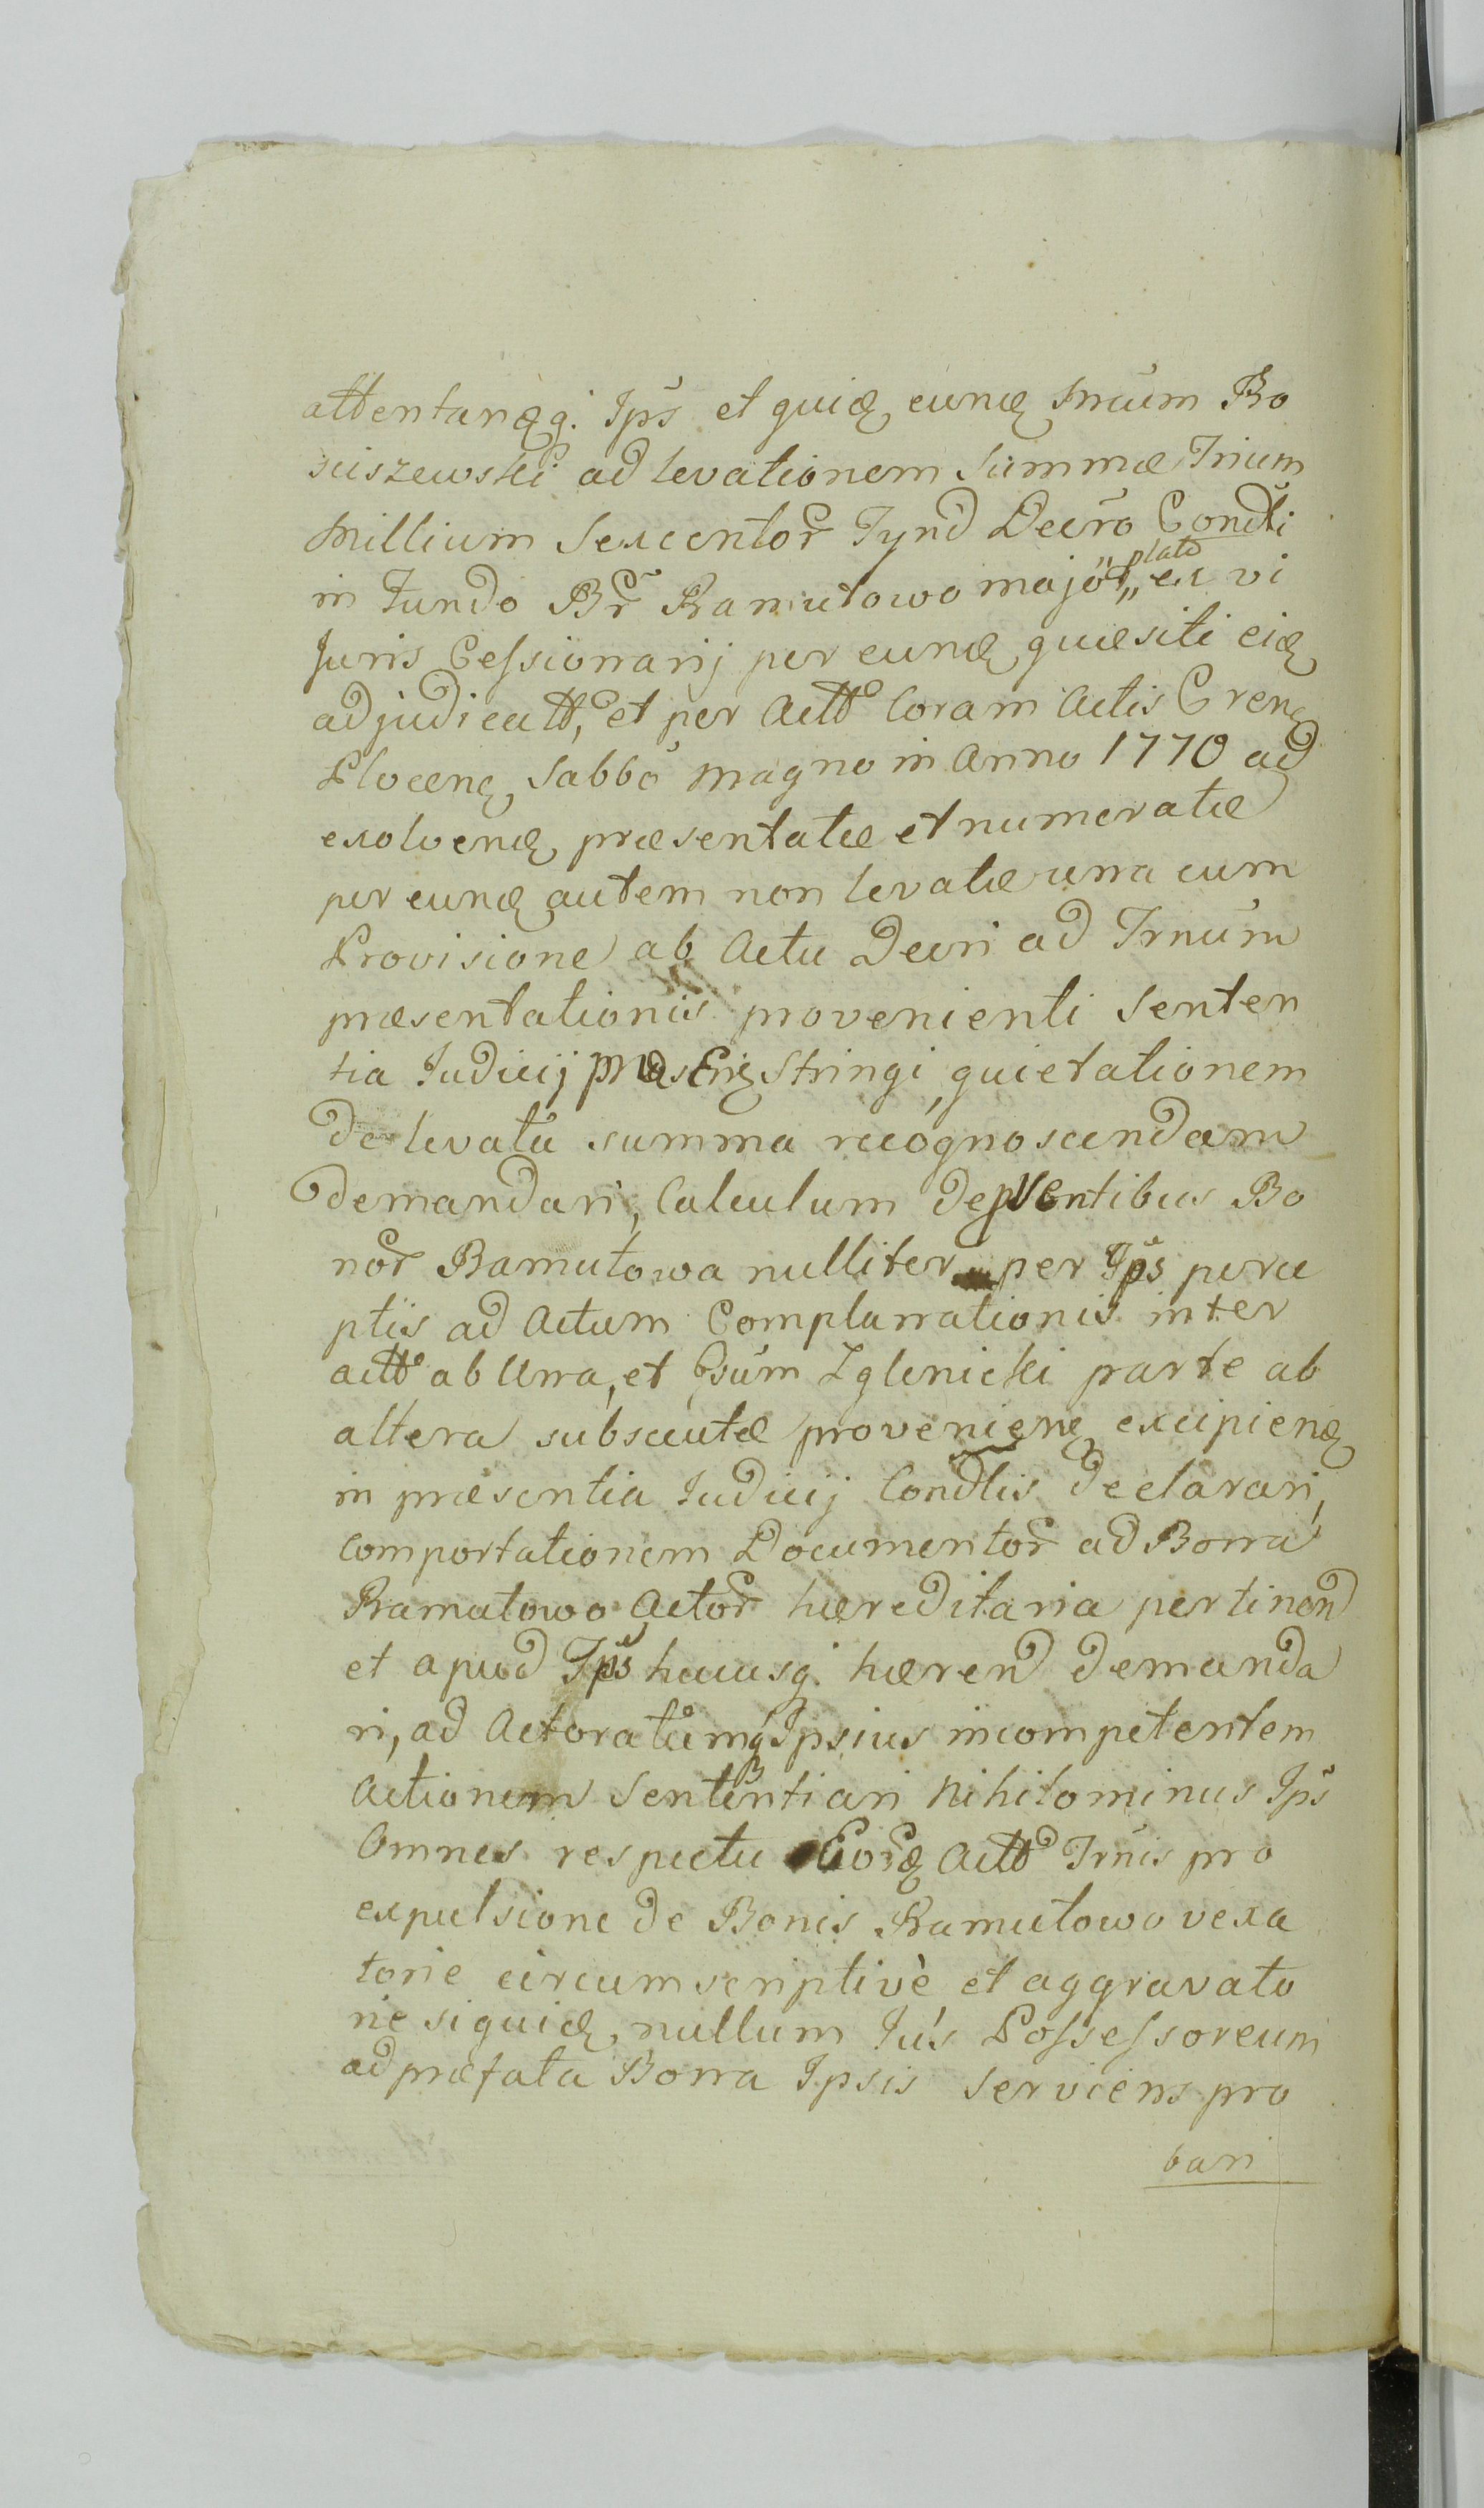 attentanꝫ q. Ips̃ et quidꝫ eundꝫ Tñeum Bo
sciszewski ad levationem Summæ Trium
Millium Sexcentor̃ Tynd Decr̃o Condti
in Fundo Br̃ Ramutowo major̃ „plato„ ex vi
Juris Cessionarij per eundꝫ quæsiti eidꝫ
adjudicatt, et per Actt Coram Actis Crenꝫ
Plocenꝫ Sabbo magno in Anno 1770 ad
exolvendꝫ præsentatæ et numeratæ
per eundꝫ autem non levatæ una cum
Provisione ab Actu Decri ad Trnum
præsentationis provenienti Senten
tia Judicij stringi, quietationem
de levata summa recognoscendam
demandari, Calculum de pventibus Bo
nor̃ Ramutowa nulliter per Ips̃ perce
ptis ad Actum Complanationis inter
actt ab Una, et Gsum Zglenicki parte ab
altera subsecutæ provenienꝫ excipiendꝫ
in præsentia Judicij Condtis declarari,
Comportationem Documentor̃ ad Bona
Ramutowo Actor̃ hæreditaria pertinen
et apud Ips̃ hucusq. hæren demanda
ri, ad Actoratumq Ipsius incompetentem
Actionem Sententiari Nihilominus Ips̃
Omnes respectu Actt Trnis pro
expulsione de Bonis Ramutowo vexa
torie circumscriptivè et aggravato
rie siquidꝫ, nullum Jus Possessoreum
ad præfata Bona Ipsis serviens pro
bari